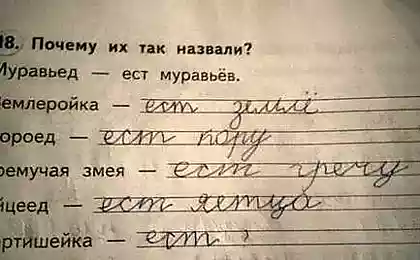 18. Почему их так назвали?
Муравьед — ест муравьёв.
Землеройка — ест землё
ороед — ест кору
ремучая змея — ест гречу
йцеед — ест яетца
ртишейка — ест ?